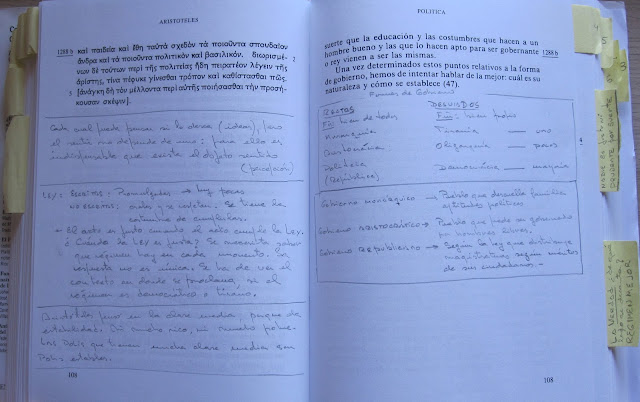 ARISTOTELES
1288 b
καὶ παιδεία καὶ ἔθη ταὐτὰ σχεδὸν τὰ ποιοῦντα σπουδαῖον
ἄνδρα καὶ τὰ ποιοῦντα πολιτικὸν καὶ βασιλικόν. διωρισμέ-
2
νων δὲ τούτων περὶ τῆς πολιτείας ἤδη πειρατέον λέγειν τῆς
ἀρίστης, τίνα πέφυκε γίνεσθαι τρόπον καὶ καθίστασθαι πῶς.
5
[ἀνάγκη δὴ τὸν μέλλοντα περὶ αὐτῆς ποιήσασθαι τὴν προσή-
κουσαν σκέψιν].
Cada cual puede pensar si lo desea (ideas), pero
el sentir no depende de uno: para ello es
indispensable que exista el objeto sentido
(percepción)
LEY: ESCRITAS: Promulgadas → hay pocas
NO ESCRITAS: orales y se respetan. Se tiene la
costumbre de cumplirlas.
El acto es justo cuando el acto cumple la LEY.
¿Cuándo la LEY es justa? Se necesita saber
que régimen hay en cada momento. La
respuesta no es única. Se ha de ver el
contexto en donde se proclama, si el
régimen es democrático o tirano.
Aristóteles en la clase media, porque da
estabilidad. Ni mucho rico, ni mucho pobre.
Las Polis que tienen mucha clase media son
Polis estables.
108
POLITICA
suerte que la educación y las costumbres que hacen a un
hombre bueno y las que lo hacen apto para ser gobernante
1288 b
o rey vienen a ser las mismas.
Una vez determinados estos puntos relativos a la forma
de gobierno, hemos de intentar hablar de la mejor: cuál es su
naturaleza y cómo se establece (47).
Formas de Gobierno
RECTAS DESVIADOS
Fin: bien de todos Fin: bien propio
Monarquía Tiranía — uno
Aristocracia Oligarquía — pocos
Politeia Democracia — mayoría
(República)
Gobierno monárquico → Pueblo que desarrolla familia
aptitudes políticas
Gobierno ARISTOCRÁTICO → Pueblo que puede ser gobernado
por hombres libres.
Gobierno REPUBLICANO → Según la ley que distribuye
magistraturas según méritos
de sus ciudadanos.
108